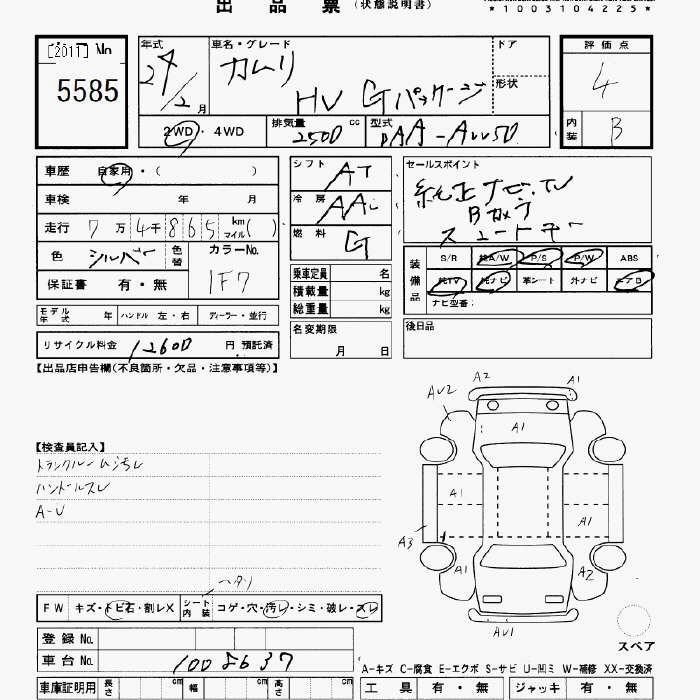 出品票（状態説明書）
*1003104225*
[2011] No
5585
年式
24/2月
車名・グレード
カムリ
HV Gパッケージ
ドア
形状
評価点
4
内装 B
2WD・4WD
排気量 2500 cc
型式 DAA-AVV50
車歴 自家用・( )
車検 年 月
走行 7万4千865 km マイル( )
色 シルバー 色替
カラーNo. 1F7
保証書 有・無
シフト AT
冷房 AAC
燃料 G
乗車定員 名
積載量 kg
総重量 kg
名変期限
月 日
セールスポイント
純正ナビ.TV
Bカメラ
スマートキー
装備品
S/R 純A/W P/S P/W ABS
純TV 純ナビ 革シート 外ナビ エアB
ナビ型番：
後日品
モデル年式 年 ハンドル 左・右 ディーラー・並行
リサイクル料金 12600 円 預託済
【出品店申告欄(不良箇所・欠品・注意事項等)】
【検査員記入】
トランクルーム汚レ
ハンドルスレ
A-U
A2 A1
AU2
A1
A1
A1
A3
A1 A2
AU1
スペア
ヘタリ
FW キズ・トビ石・割レX シート内装 コゲ・穴・汚レ・シミ・破レ・スレ
登録 No.
車台 No. 1008637
A-キズ C-腐食 E-エクボ S-サビ U-凹ミ W-補修 XX-交換済
車庫証明用 長さ cm 幅 cm 高さ cm
工具 有・無 ジャッキ 有・無